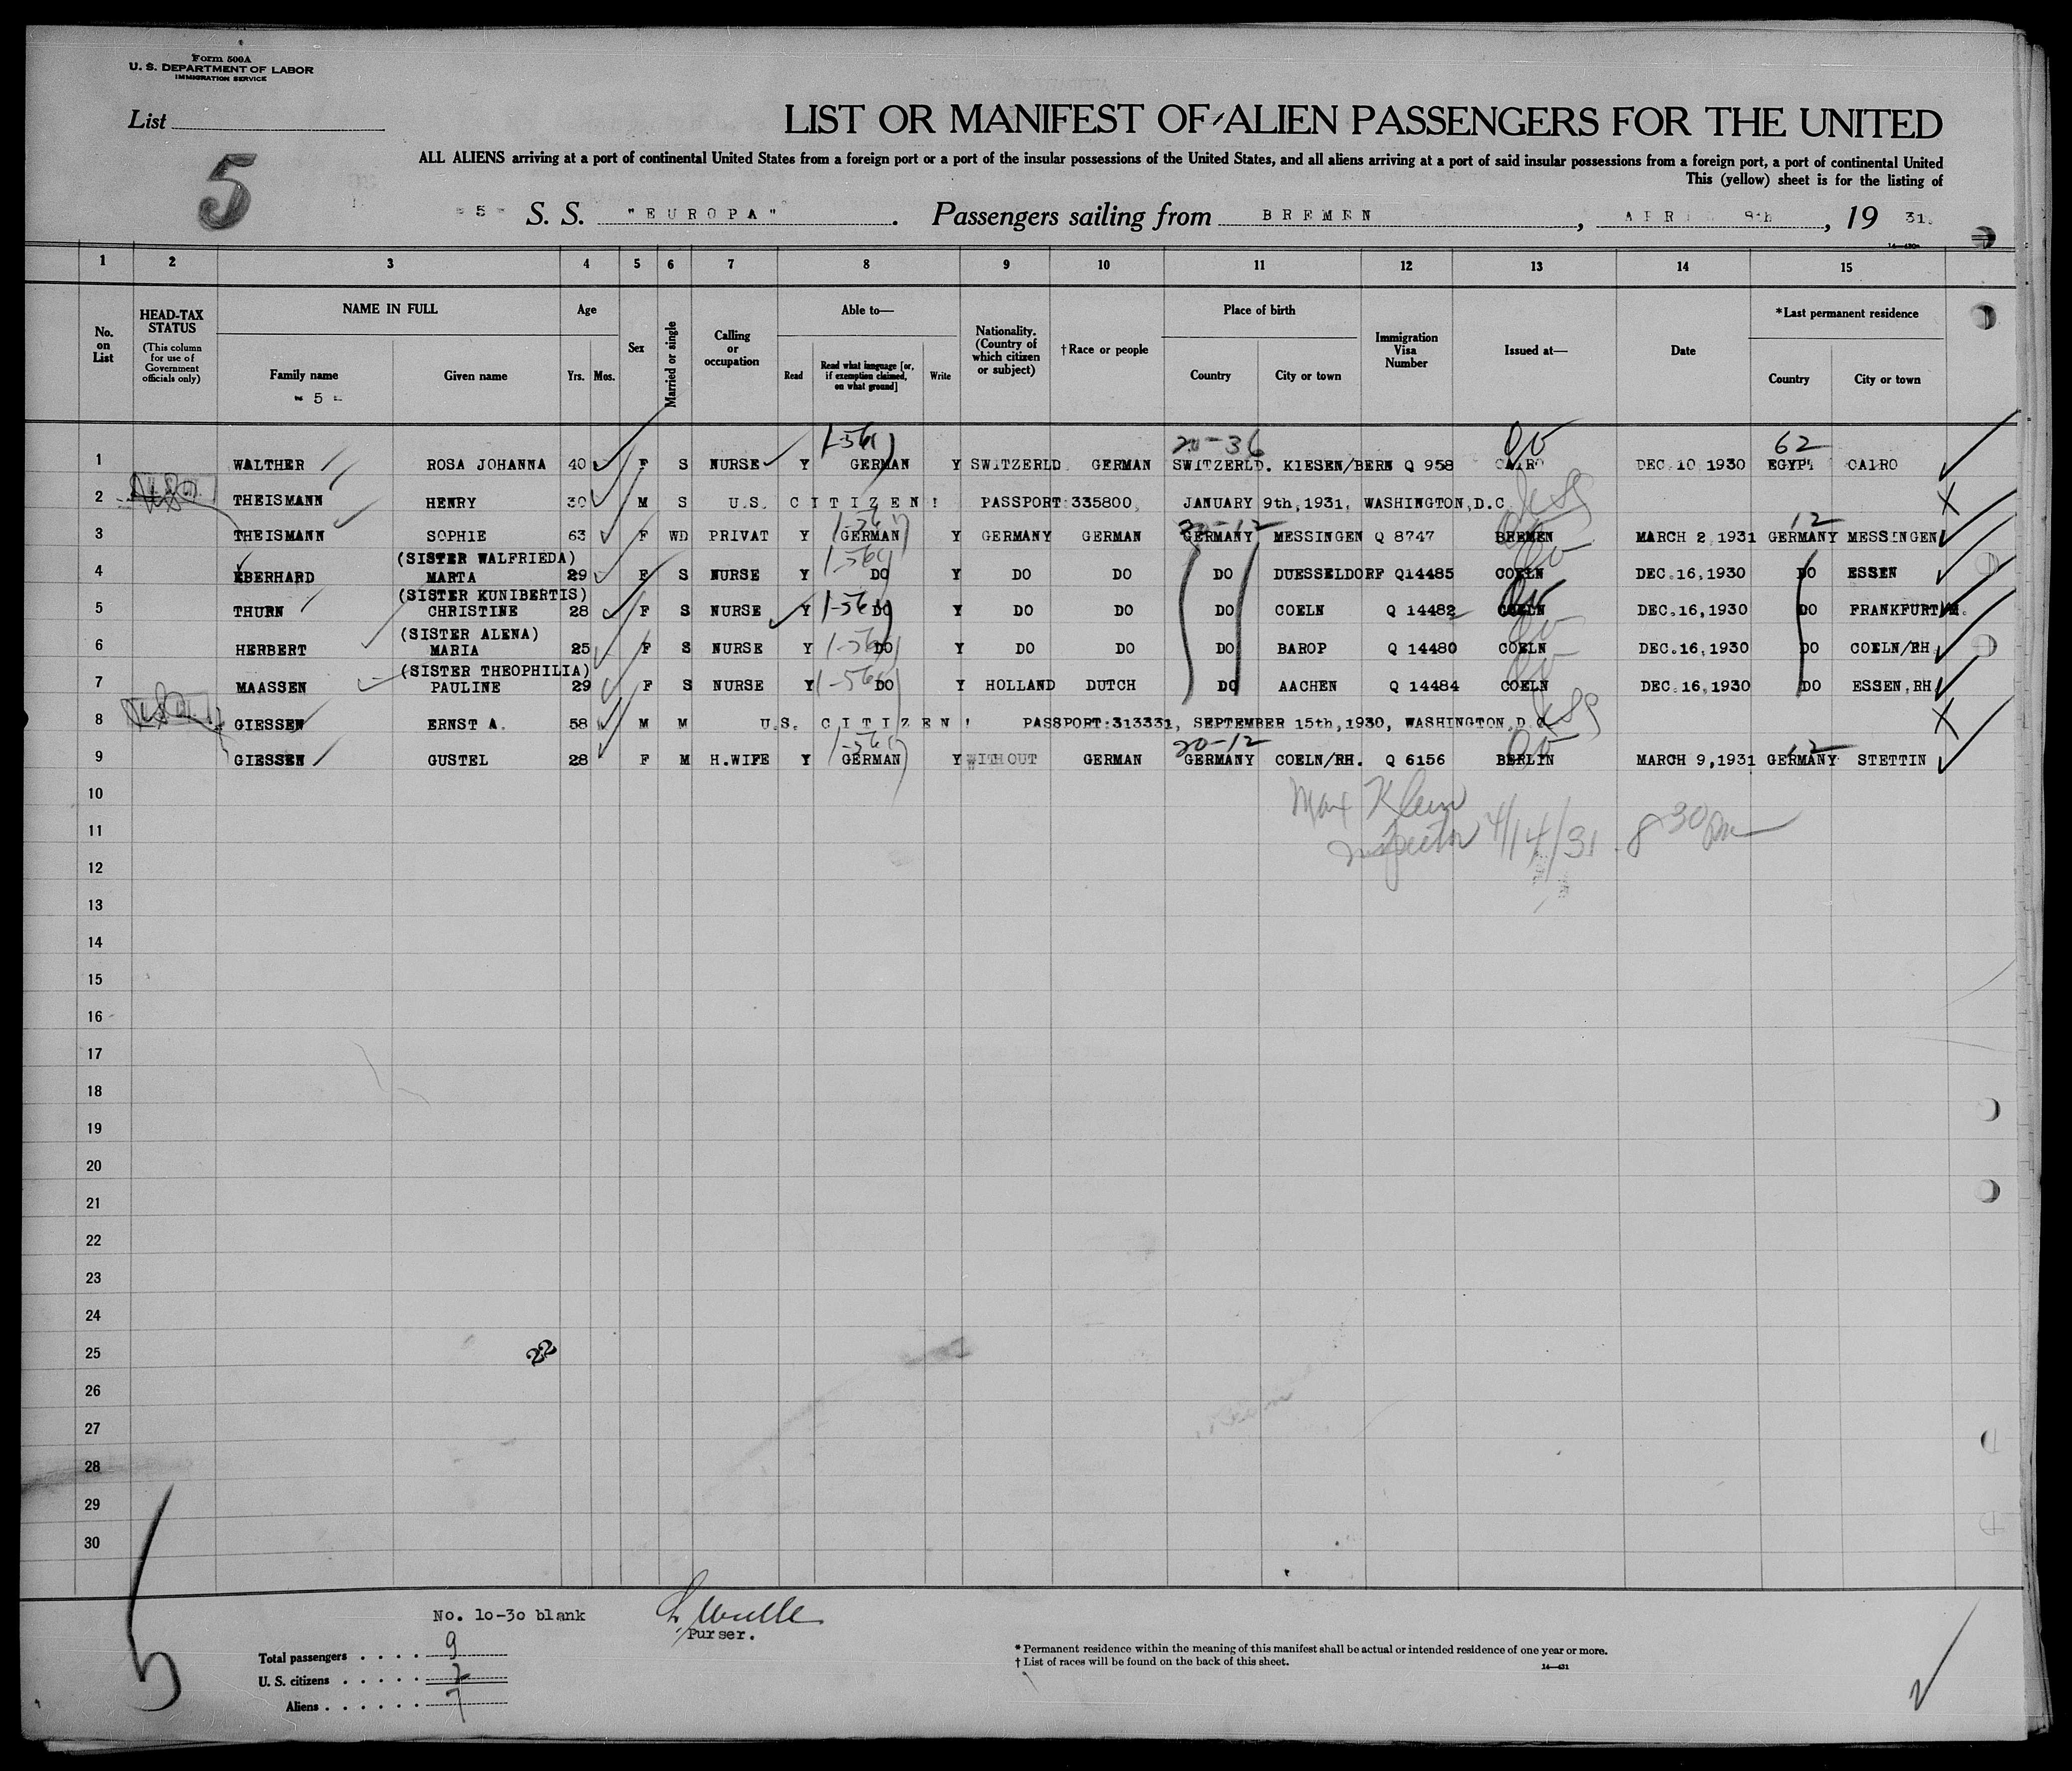 Form 500A
U. S. DEPARTMENT OF LABOR
IMMIGRATION SERVICE
List
5
LIST OR MANIFEST OF ALIEN PASSENGERS FOR THE UNITED
ALL ALIENS arriving at a port of continental United States from a foreign port or a port of the insular possessions of the United States, and all aliens arriving at a port of said insular possessions from a foreign port, a port of continental United
This (yellow) sheet is for the listing of
- 5 - S. S. "EUROPA" . Passengers sailing from BREMEN , APRIL 8th , 19 31.
14—430a
1 2 3 4 5 6 7 8 9 10 11 12 13 14 15
No. on List
HEAD-TAX STATUS
(This column for use of Government officials only)
NAME IN FULL
Family name
- 5 -
Given name
Age
Yrs. Mos.
Sex
Married or single
Calling or occupation
Able to—
Read
Read what language [or, if exemption claimed, on what ground]
Write
Nationality. (Country of which citizen or subject)
†Race or people
Place of birth
Country
City or town
Immigration Visa Number
Issued at—
Date
*Last permanent residence
Country
City or town
1-56 20-36 62
1 WALTHER ROSA JOHANNA 40 F S NURSE Y GERMAN Y SWITZERLD GERMAN SWITZERLD. KIESEN/BERN Q 958 CAIRO DEC 10, 1930 EGYPT CAIRO
2 THEISMANN HENRY 30 M S U.S. CITIZEN! PASSPORT:335800, JANUARY 9th,1931, WASHINGTON,D.C. X
1-56 20-12 12
3 THEISMANN SOPHIE 63 F WD PRIVAT Y GERMAN Y GERMANY GERMAN GERMANY MESSINGEN Q 8747 BREMEN MARCH 2,1931 GERMANY MESSINGEN
(SISTER WALFRIEDA) 1-56
4 EBERHARD MARTA 29 F S NURSE Y DO Y DO DO DO DUESSELDORF Q14485 COELN DEC.16,1930 DO ESSEN
(SISTER KUNIBERTIS)
5 THURN CHRISTINE 28 F S NURSE Y 1-56 DO Y DO DO DO COELN Q 14482 COELN DEC.16,1930 DO FRANKFURT/M.
(SISTER ALENA)
6 HERBERT MARIA 25 F S NURSE Y 1-56 DO Y DO DO DO BAROP Q 14480 COELN DEC.16,1930 DO COELN/RH.
(SISTER THEOPHILIA)
7 MAASSEN PAULINE 29 F S NURSE Y 1-56 DO Y HOLLAND DUTCH DO AACHEN Q 14484 COELN DEC.16,1930 DO ESSEN,RH.
8 GIESSEN ERNST A. 58 M M U.S. CITIZEN! PASSPORT:313331, SEPTEMBER 15th,1930, WASHINGTON,D.C. X
1-56 20-12 12
9 GIESSEN GUSTEL 28 F M H.WIFE Y GERMAN Y WITHOUT GERMAN GERMANY COELN/RH. Q 6156 BERLIN MARCH 9,1931 GERMANY STETTIN
10 Max Klein
11 Inspector 4/14/31 8 30 pm
12
13
14
15
16
17
18
19
20
21
22
23
24
25 22
26
27
28
29
30
No. 10-30 blank
Purser.
Total passengers . . . . 9
U. S. citizens . . . . . 2
Aliens . . . . . . 7
* Permanent residence within the meaning of this manifest shall be actual or intended residence of one year or more.
† List of races will be found on the back of this sheet.
14—431